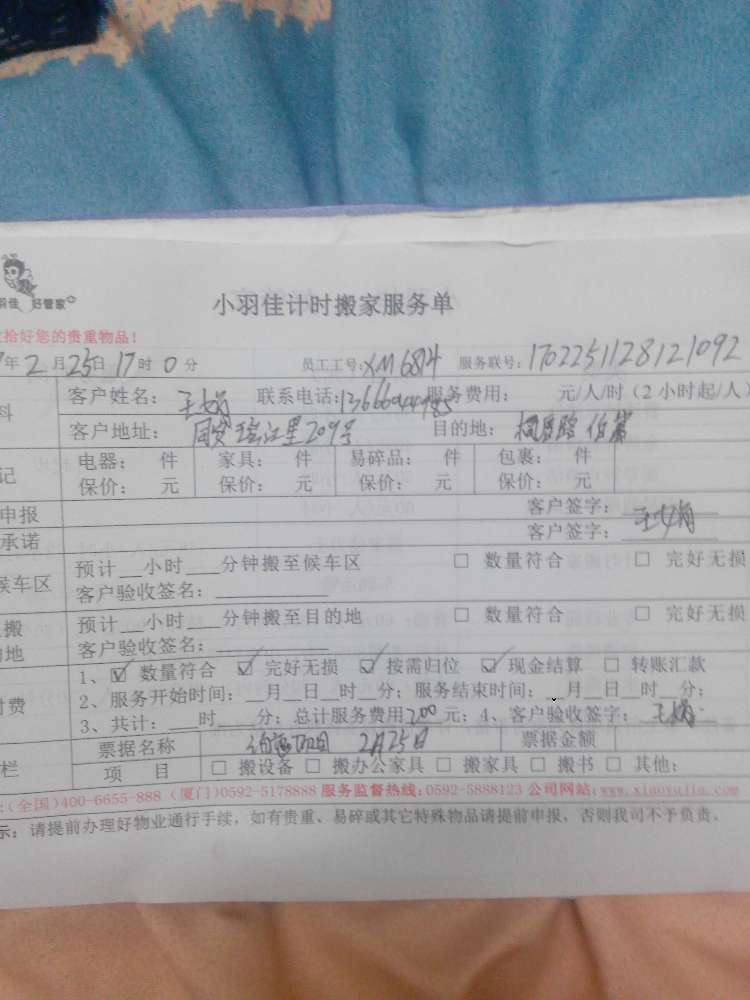 羽佳 好管家
小羽佳计时搬家服务单
拾好您的贵重物品！
年2月25日17时0分 员工工号：XM6814 服务联号：1702251128121092
客户姓名：王 联系电话： 服务费用： 元/人/时（2小时起/人）
客户地址：同安 江里209号 目的地：
电器： 件 家具： 件 易碎品： 件 包裹： 件
保价： 元 保价： 元 保价： 元 保价： 元
申报 客户签字：
承诺 客户签字：王
候车区 预计__小时___分钟搬至候车区 □ 数量符合 □ 完好无损
客户验收签名：
搬 预计__小时___分钟搬至目的地 □ 数量符合 □ 完好无损
的地 客户验收签名：
1、☑ 数量符合 ☑ 完好无损 ☑ 按需归位 ☑ 现金结算 □ 转账汇款
付费 2、服务开始时间：__月__日__时__分；服务结束时间：__月__日__时__分；
3、共计：___时___分；总计服务费用200元；4、客户验收签字：王
栏 票据名称 2月25日 票据金额
项 目 □ 搬设备 □ 搬办公家具 □ 搬家具 □ 搬书 □ 其他：
（全国）400-6655-888（厦门）0592-5178888 服务监督热线：0592-5888123 公司网站：www.xiaoyujia.com
示：请提前办理好物业通行手续，如有贵重、易碎或其它特殊物品请提前申报，否则我司不予负责。